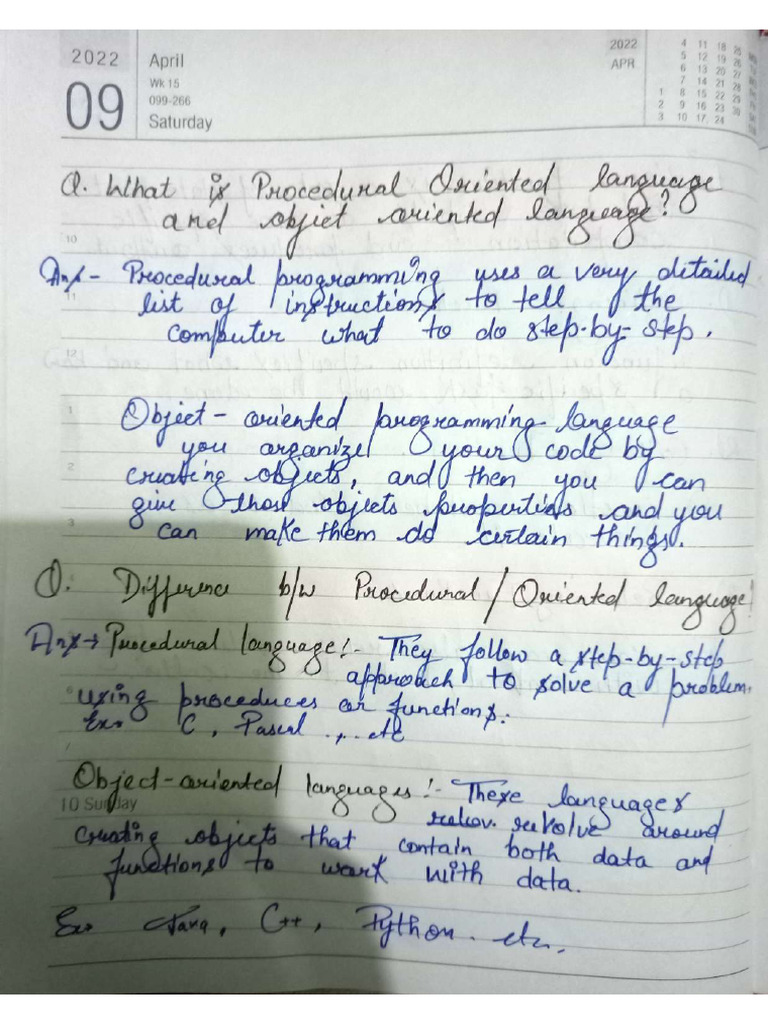 2022 April
Wk 15
099-266
09 Saturday
2022
APR
4 11 18 25
5 12 19 26
6 13 20 27
7 14 21 28
1 8 15 22 29
2 9 16 23 30
3 10 17 24
Q. What is Procedural Oriented language
and objet oriented language?
10
Ans - Procedural programming uses a very detailed
11
list of instructions to tell the
computer what to do step-by-step.
12
1
Object - oriented programming language
you organize your code by
2
creating objects, and then you can
give those objects properties and you
3
can make them do certain things.
Q. Difference b/w Procedural / Oriented language!
Ans → Procedural language:- They follow a step-by-step
approach to solve a problem.
using procedures or functions.
Ex. C, Pascal ., .. etc
Object-oriented languages:- These languages
10 Sunday
revolve around
creating objects that contain both data and
functions to work with data.
Ex. Java, C++, Python. etc.